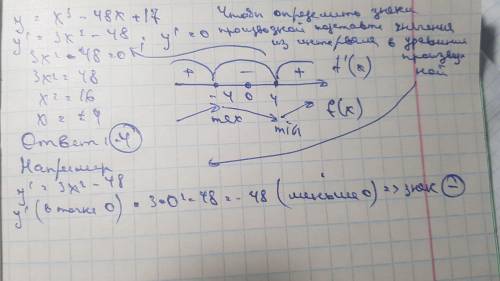 y = x³ - 48x + 17
y' = 3x² - 48 ; y' = 0
3x² - 48 = 0
3x² = 48
x² = 16
x = ±4
Ответ: -4
Чтобы определить знаки
производной подставьте значения
из интервала в уравнение
производной
+ - + f'(x)
-4 0 4
max min f(x)
Например
y' = 3x² - 48
y' (в точке 0) = 3·0² - 48 = -48 (меньше 0) => знак -